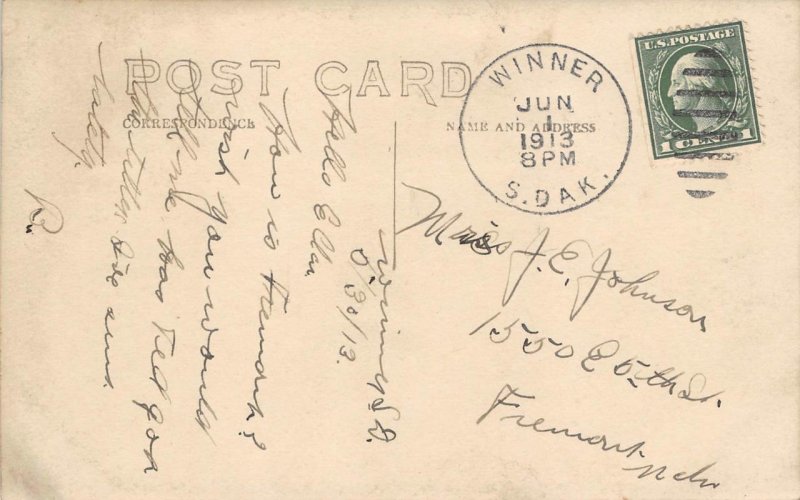 POST CARD
CORRESPONDENCE
NAME AND ADDRESS
WINNER
JUN
1
1913
8PM
S. DAK.
U.S. POSTAGE
1 CENT 1
Winner, S.D.
5/30/13.
Hello Ella,
How is Fremont?
wish you would
tell me how Ted got
lately.
R.
Miss J. E. Johnson
1550 E 5th St.
Fremont
Nebr